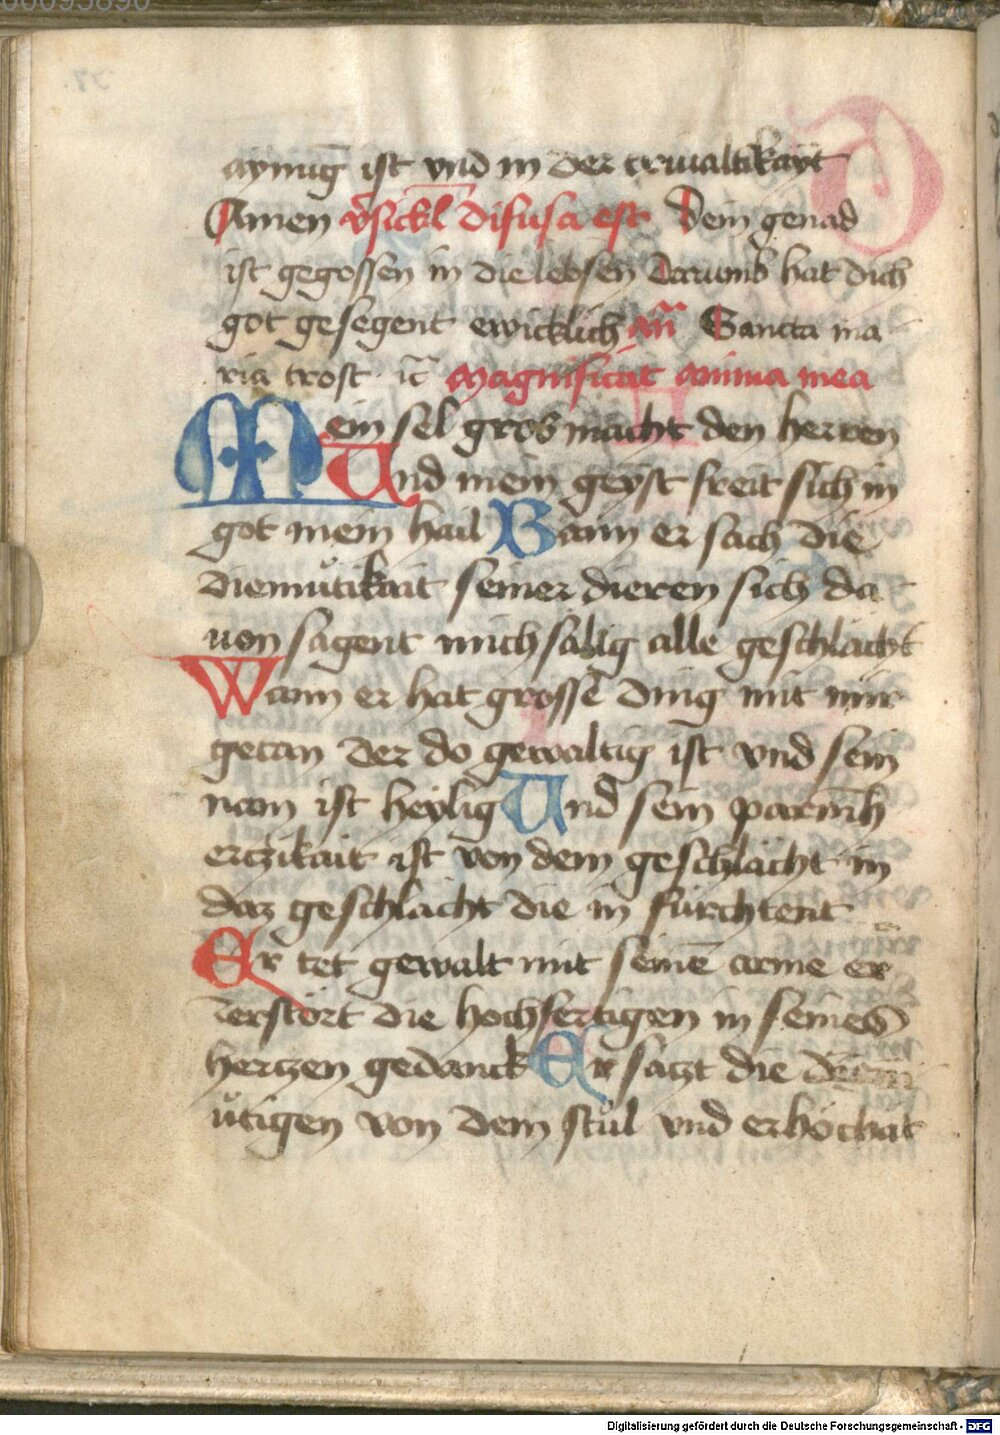 aynnig ist vnd in der triualtikayt
Amen v̉sickl̄ Difusa est Dein genad
ist gegossen in die lebsen Darumb hat dich
got gesegent ewicklich añ Sancta ma
ria trost ⁊c̃ Magnificat anima mea
Mein sel gros macht den herren
Und mein geyst freit sich in
got mein hail Wann er sach die
diemůtikait seiner dieren sich da
uon sagent mich sälig alle geschlächt
Wann er hat grosse ding mit mir
getan der do gewaltig ist vnd sein
nam ist heylig Und sein parmh
ertzikait ist von dem geschlächt in
daz geschlächt die in fürchtent
Er tet gewalt mit seinē arme er
zerstört die hochfertigen in seines
hertzen gedanck Er satzt die
ůtigen von dem stůl vnd erhöchat
Digitalisierung gefördert durch die Deutsche Forschungsgemeinschaft - DFG